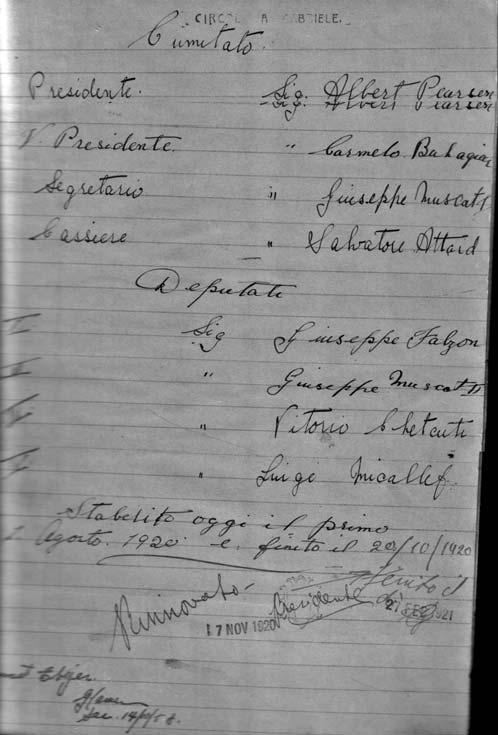 CIRC A GABRIELE.
Cumitato.
Presidente. Sig. Albert Pearsen
V. Presidente. " Carmelo Bahagiar
Segretario " Giuseppe Muscat I
Cassiere " Salvatore Attard
Deputati
Sig Giuseppe Falzon
" Giuseppe Muscat II
" Vitorio Chetcuti
" Luigi Micallef.
Stabelito oggi il primo
Agosto. 1920 e. finito il 20/10/1920
Rinnovato - Presidente
17 NOV 1920 1921
Sec.